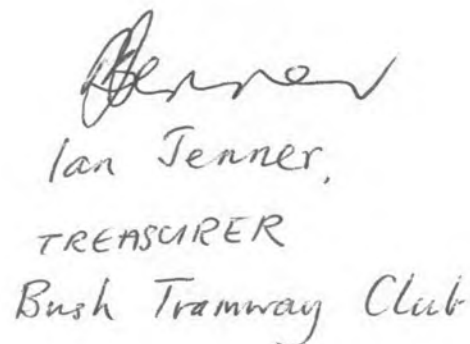 Ian Jenner,
TREASURER
Bush Tramway Club